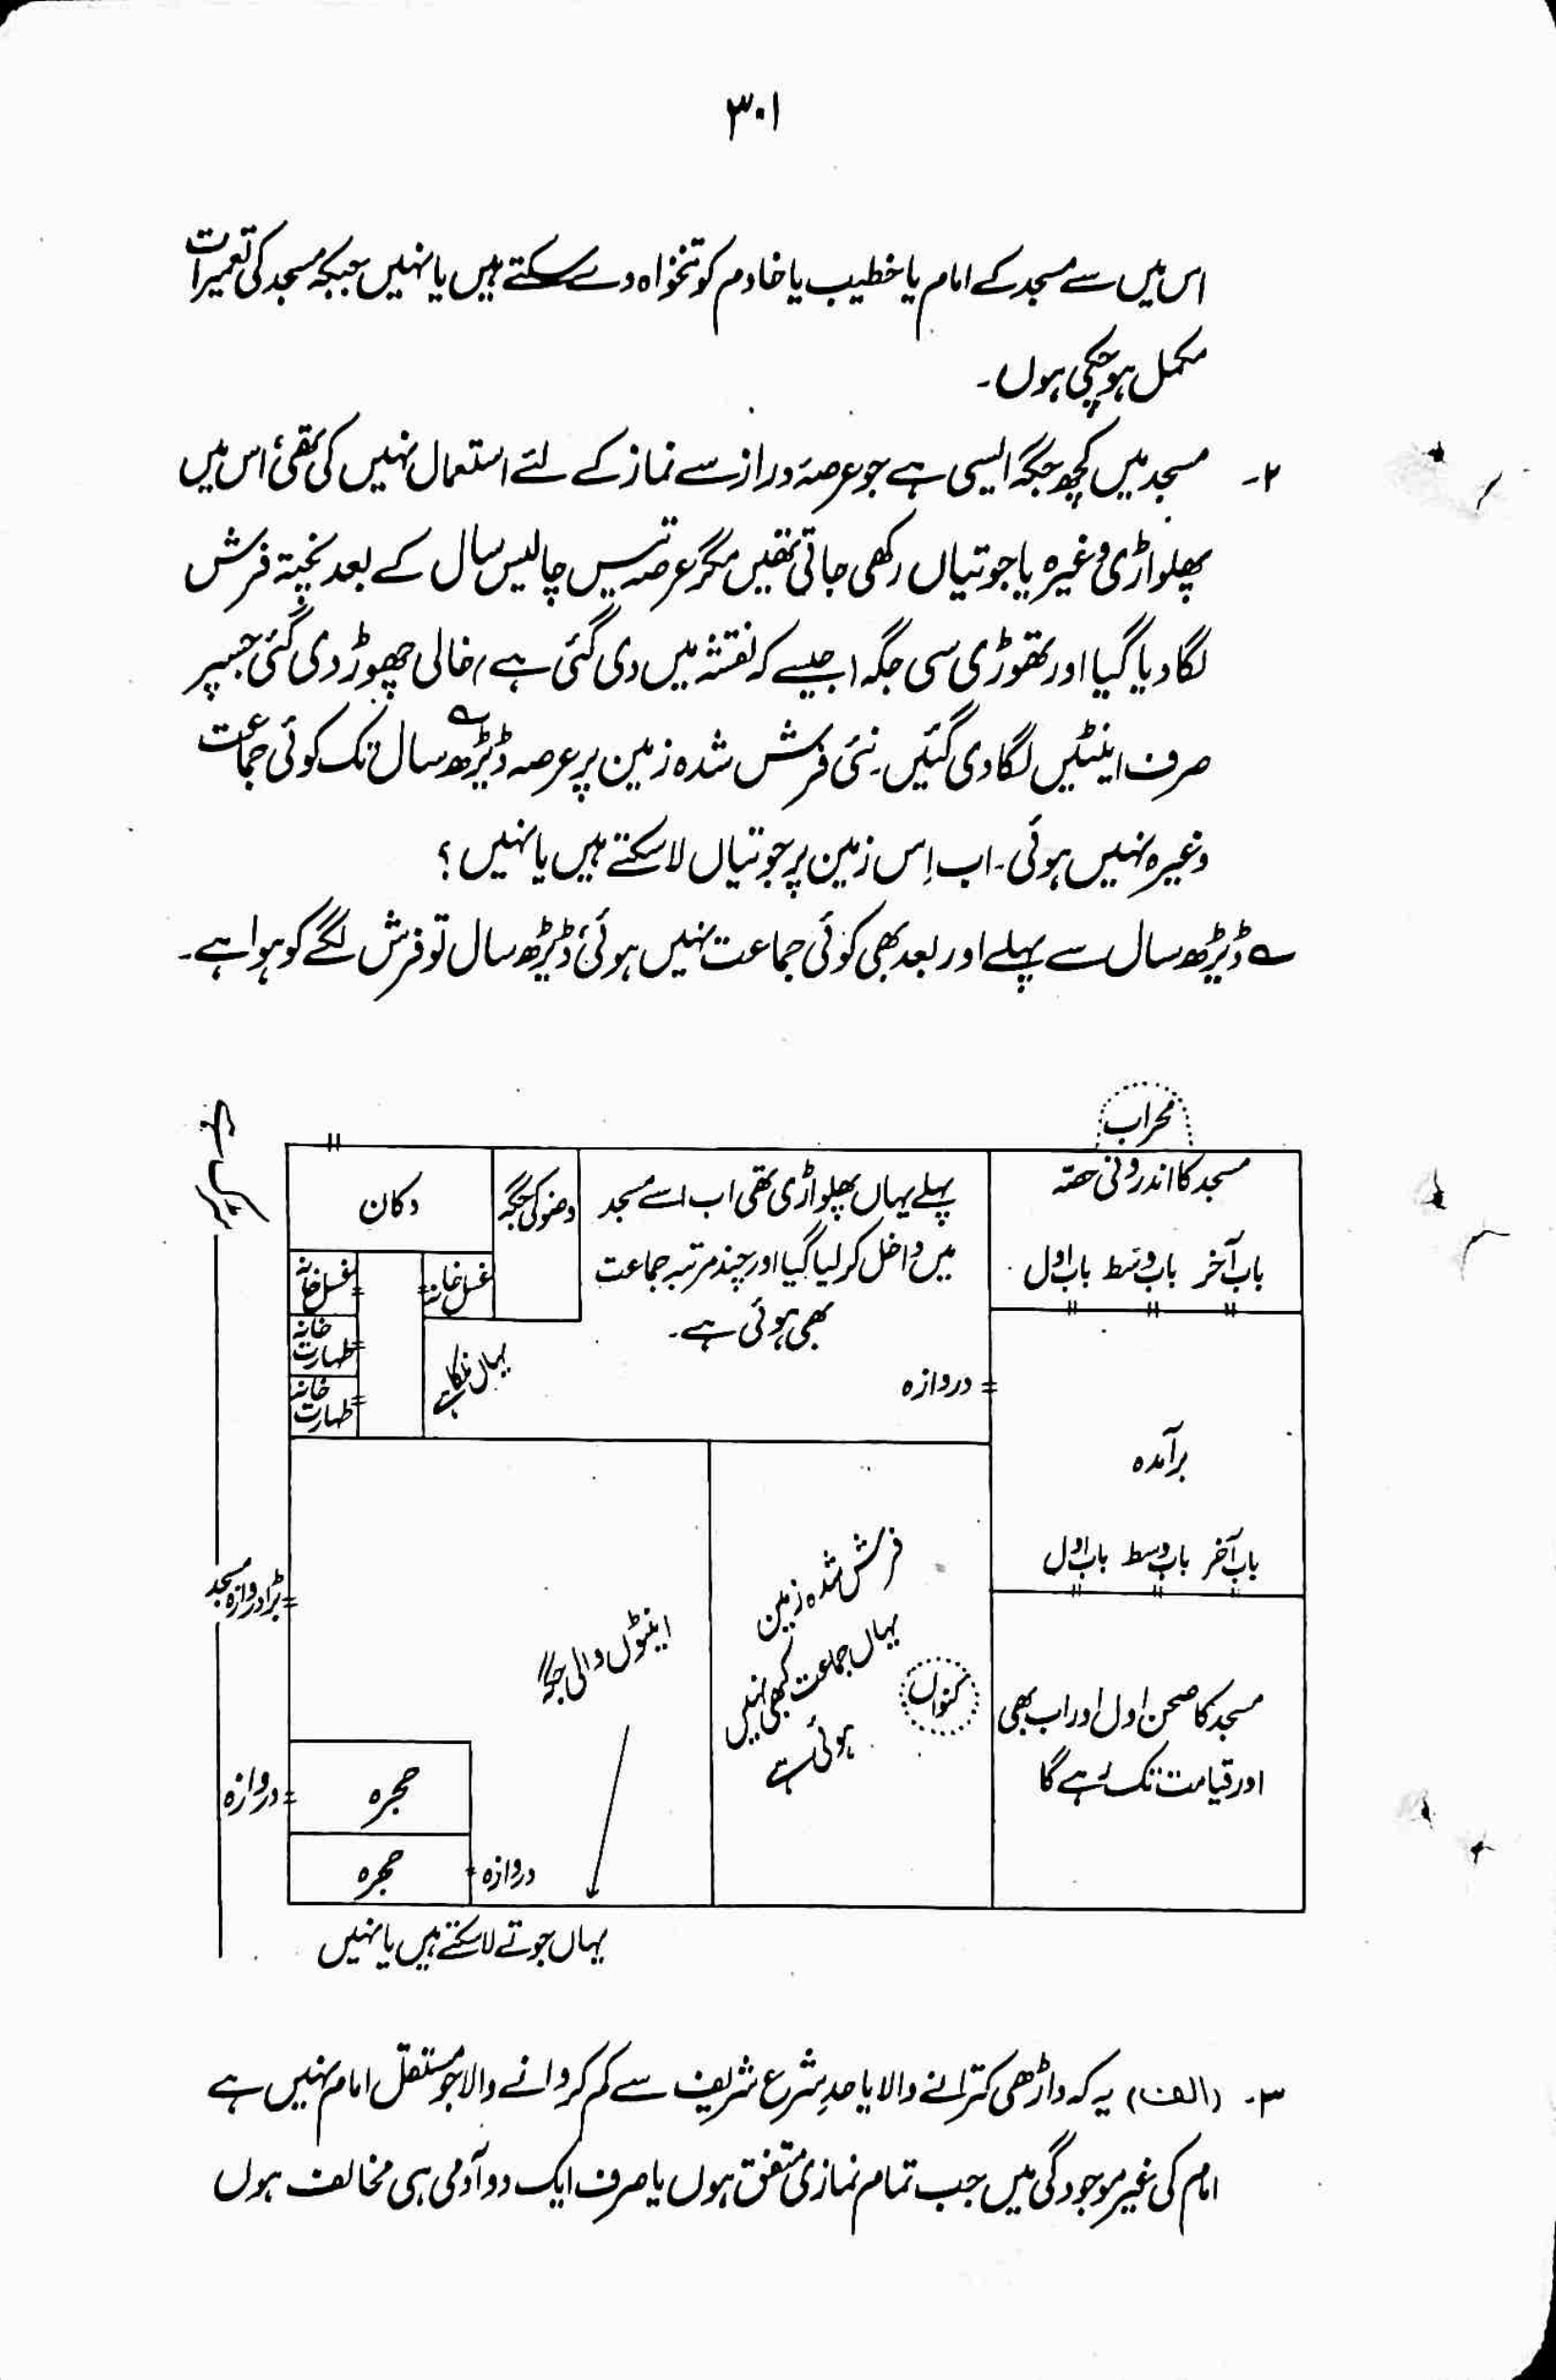 ۳۰۱
اس میں سے مسجد کے امام یا خطیب یا خادم کو تنخواہ دے سکتے ہیں یا نہیں جبکہ مسجد کی تعمیرات
مکمل ہو چکی ہوں۔
۲۔ مسجد میں کچھ جگہ ایسی ہے جو عرصۂ دراز سے نماز کے لئے استعمال نہیں کی تھی، اس میں
پھلواڑی وغیرہ یا جوتیاں رکھی جاتی تھیں مگر عرصہ تیس چالیس سال کے بعد پختہ فرش
لگا دیا گیا اور تھوڑی سی جگہ (جیسے کہ نقشہ میں دی گئی ہے) خالی چھوڑ دی گئی جسپر
صرف اینٹیں لگا دی گئیں۔ نئی فرش شدہ زمین پر عرصہ ڈیڑھ سال تک کوئی جماعت
وغیرہ نہیں ہوئی۔ اب اِس زمین پر جوتیاں لا سکتے ہیں یا نہیں؟
ے ڈیڑھ سال سے پہلے اور بعد بھی کوئی جماعت نہیں ہوئی، ڈیڑھ سال تو فرش لگے کو ہوا ہے۔
محراب
مسجد کا اندرونی حصہ
باب آخر باب وسط باب اول
پہلے یہاں پھلواڑی تھی اب اسے مسجد
میں داخل کر لیا گیا اور چند مرتبہ جماعت
بھی ہوئی ہے۔
وضو کی جگہ
دکان
غسل خانہ
غسل خانہ
طہارت خانہ
طہارت خانہ
یہاں نلکا ہے
دروازہ
برآمدہ
باب آخر باب وسط باب اول
فرش شدہ زمین
یہاں جماعت کبھی نہیں
ہوئی ہے
کنواں
اینٹوں والی جگہ
مسجد کا صحن اول اور اب بھی
اور قیامت تک رہے گا
بڑا دروازہ مسجد
دروازہ
حجرہ
حجرہ
دروازہ
یہاں جوتے لا سکتے ہیں یا نہیں
۳۔ (الف) یہ کہ داڑھی کترانے والا یا حدِ شرع شریف سے کم کروانے والا جو مستقل امام نہیں ہے
امام کی غیر موجودگی میں جب تمام نمازی متفق ہوں یا صرف ایک دو آدمی ہی مخالف ہوں